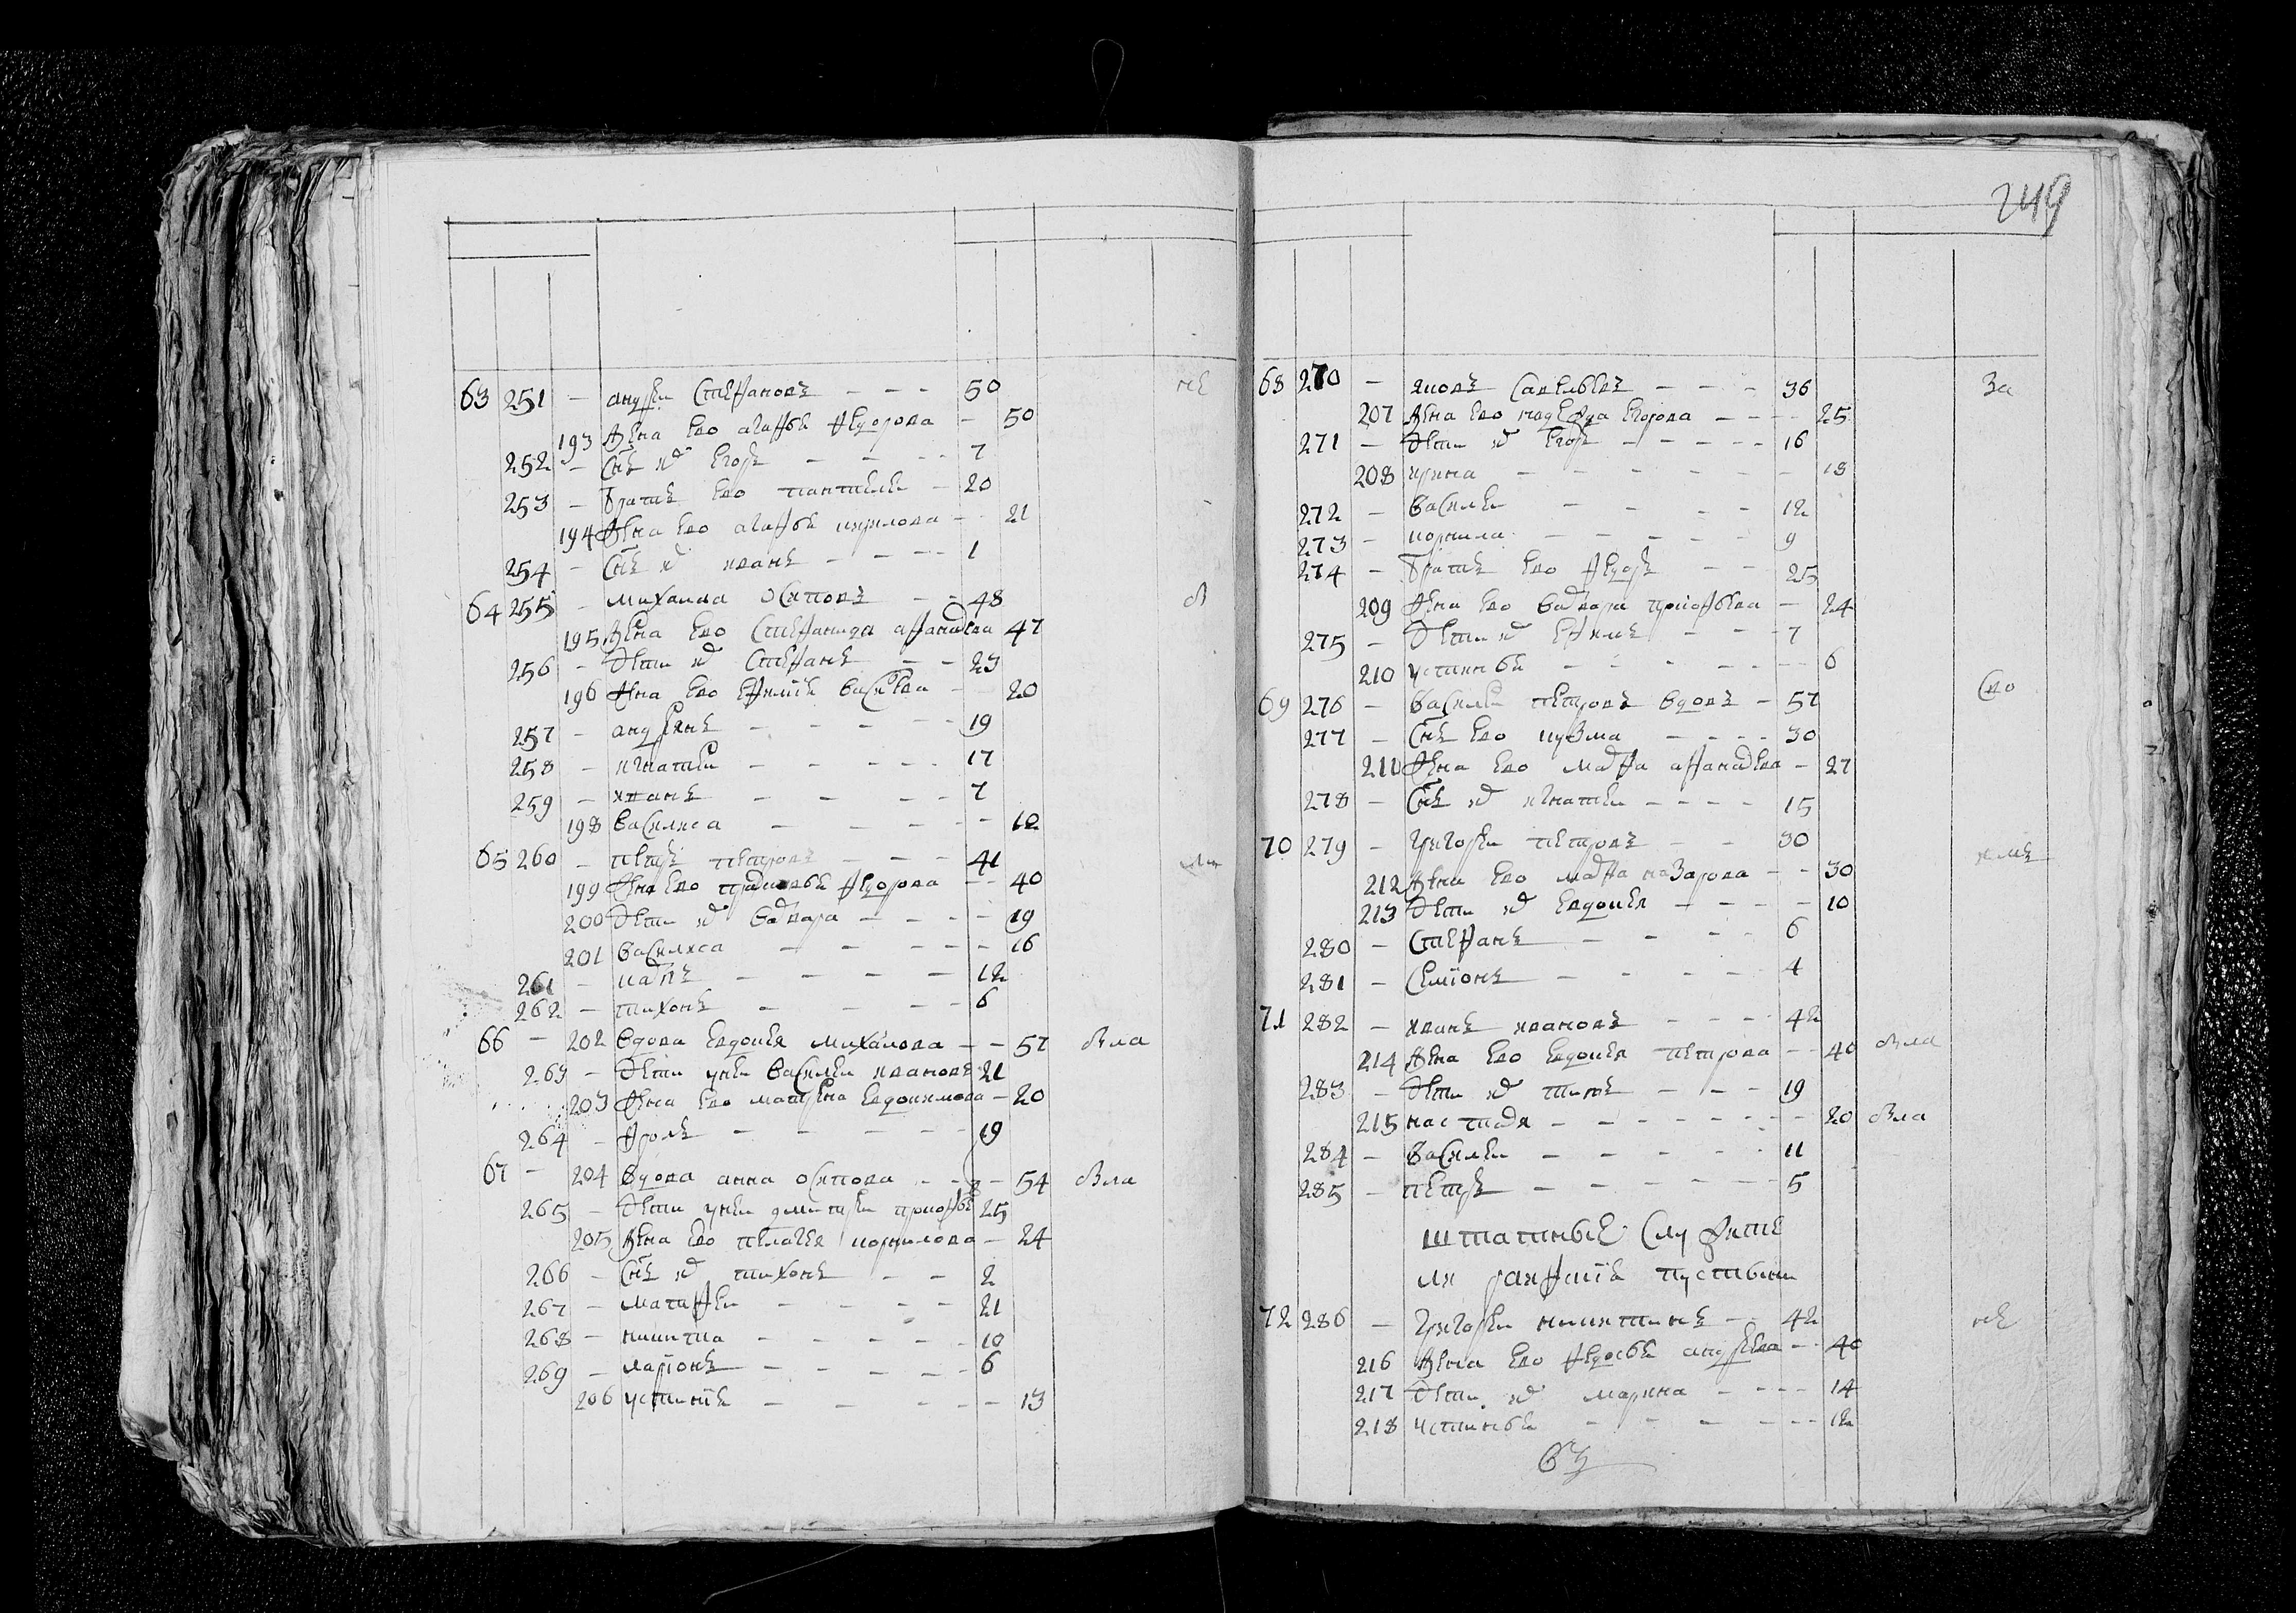 249
63 251 – андреи Степановъ – – – 50
193 жена ево агафья федорова – 50
252 – Снъ их егоръ – – – 7
253 – братъ ево пантелеи – 20
194 жена ево агафья кирилова – 21
254 – Снъ их иванъ – – – 1
64 255 – михаила осиповъ – – 48
195 жена ево Степанида афанасева 47
256 – дети их Степанъ – – 23
196 жена ево васильева – 20
257 – андреянъ – – – 19
258 – игнатеи – – – – 17
259 – иванъ – – – – 7
198 василиса – – – – 12
65 260 – петръ петровъ – – – 41
199 жена ево прасковья федорова – – 40
200 дети их варвара – – – – 19
201 василиса – – – – 16
261 – карпъ – – – – 12
262 – тихонъ – – – 6
66 – 202 вдова евдокея михаилова – – 57
263 – дети унеи василеи ивановъ 21
203 жена ево матрена евдокимова – 20
264 – фролъ – – – – 19
67 – 204 вдова анна осипова – – – 54
265 – дети унеи дмитреи прокофьевъ 25
205 жена ево пелагея корнилова – 24
266 – Снъ их тихонъ – – 2
267 – матфеи – – – – 21
268 – никита – – – – 10
269 – ларионъ – – – – 6
206 устинья – – – – 13
68 270 – яковъ Савельевъ – – – 36
207 жена ево надежда егорова – – – 25
271 – дети их егоръ – – – – 16
208 ирина – – – – – 18
272 – василеи – – – – 12
273 – корнила – – – – 9
274 – братъ ево федоръ – – 25
209 жена ево варвара прокофьева – 24
275 – дети их ефимъ – – – 7
210 устинья – – – – – 6
69 276 – василеи петровъ вдовъ – 57
277 – Снъ ево кузма – – – – 30
211 жена ево марфа афанасева – 27
278 – Снъ их игнатеи – – – – 15
70 279 – григореи петровъ – – 30
212 жена ево марфа назарова – – 30
213 дети их евдокея – – – – 10
280 – Степанъ – – – – 6
281 – Семионъ – – – – 4
71 282 – иванъ ивановъ – – – 42
214 жена ево евдокея петрова – – 40
283 – дети их титъ – – – 19
215 настася – – – – – 20
284 – василеи – – – – – 11
285 – петръ – – – – – 5
штатные Служите
ли раифския пустыни
72 286 – григореи никитинъ – 42
216 жена ево федосья андреева – – 40
217 дети их марина – – – – 14
218 устинья – – – – – 12